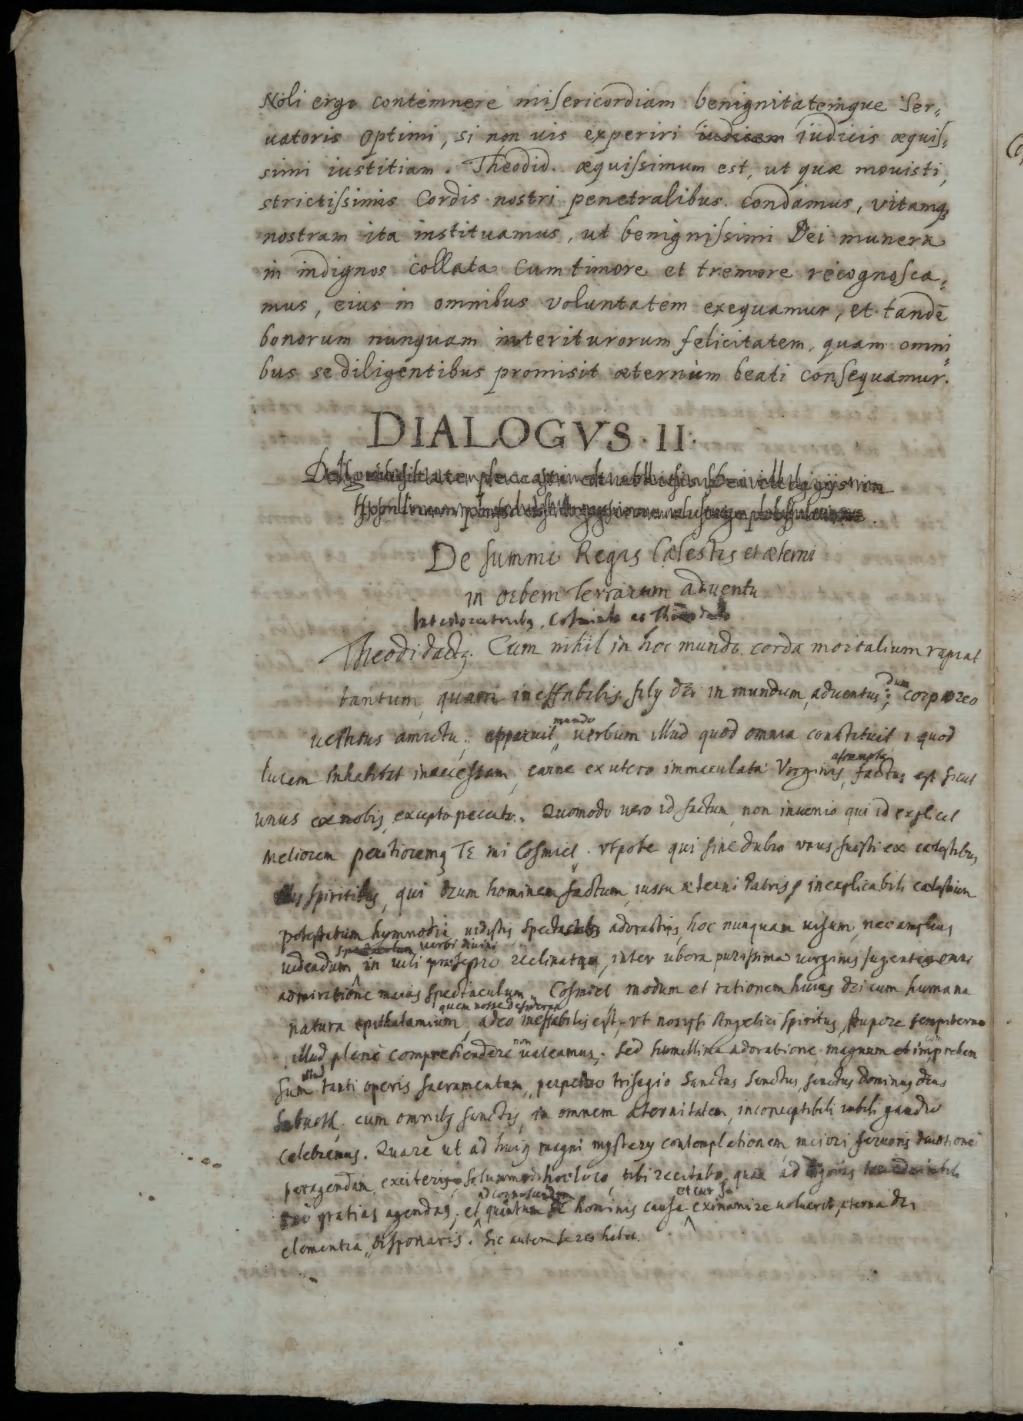 Noli ergo contemnere misericordiam benignitatemque Ser,
uatoris optimi, si non uis experiri iudicem iudicis æquis,
simi iustitiam. Theodid. æquissimum est, ut quæ mouisti,
strictissimis Cordis nostri penetralibus condamus, vitamq;
nostram ita instituamus, ut benignissimi Dei munera
in indignos collata Cum timore et tremore recognosca,
mus, eius in omnibus voluntatem exequamur, et tandē
bonorum nunquam interiturorum felicitatem, quam omni
bus se diligentibus promisit æternum beati consequamur.
DIALOGVS · II ·
De summi Regis Cælestis et æterni
in orbem Terrarum aduentu
Interlocutoribus, Cosmiele ac
Theodidactus. Cum nihil in hoc mundo corda mortalium rapiat
tantum, quam ineffabilis filij dei in mundum aduentus; dum corporeo
uestitus amictu, apparuit mundo uerbum illud quod omnia constituit, quod
lucem inhabitet inaccessam, carne ex utero immaculatæ Virginis assumpta, factus est sicut
unus ex nobis excepto peccato. Quomodo uero id factum, non inuenio qui id explicet
meliorem peritioremq; Te mi Cosmiel. Vtpote qui sine dubio unus fuisti ex cælestibus
spiritibus, qui deum hominem factum, iussu æterni Patris, inexplicabili cælestium
potestatum hymnodia uidistis adorastis, hoc nunquam uisum, nec amplius
uidendum uerbi diuini in uili præsepio reclinatum, inter ubera purissimæ uirginis sugentis omni
admiratione maius spectaculum. Cosmiel modum et rationem huius dei cum humana
natura epithalamium, quem nosse desideras adeo ineffabilis est, ut nos ipsi Angelici spiritus, stupore sempiterno
illud plane comprehendere non ualeamus. Sed humillima adoratione magnum et
illud tanti operis sacramentum, perpetuo trisagio Sanctus Sanctus, sanctus dominus deus
Sabaoth, cum omnibus sanctis, in omnem æternitatem, inconceptibili iubili gaudio
celebremus. Quare ut ad huius magni mysterij contemplationem maiori feruoris deuotione
peragendam exciteris, solummodo hoc loco, tibi recitabo, quæ ad
gratias agendas, et ad cognoscendum quantum hominis causa et cur se exinanire uoluerit æterna dei
clementia, disponaris. Sic autem se res habet.